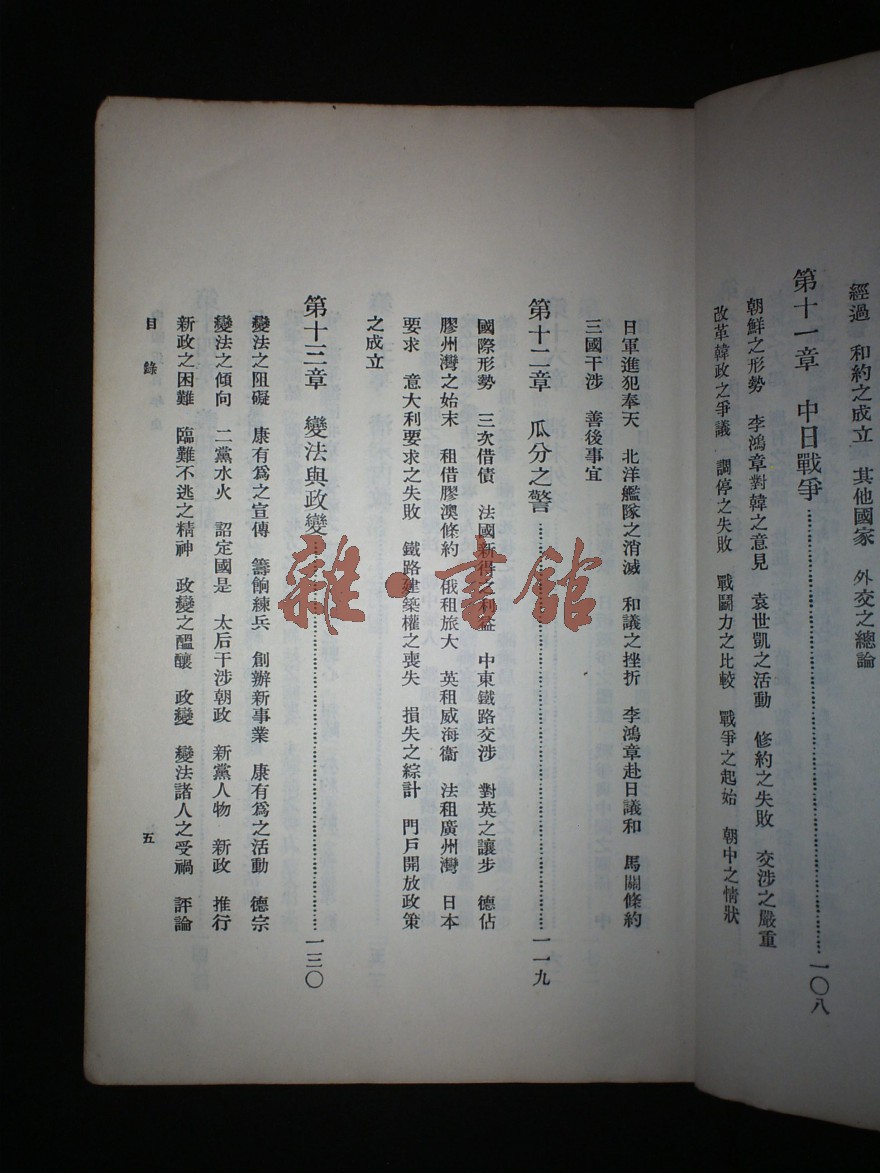 經過　和約之成立　其他國家　外交之總論
第十一章　中日戰爭……一〇八
朝鮮之形勢　李鴻章對韓之意見　袁世凱之活動　修約之失敗　交涉之嚴重
改革韓政之爭議　調停之失敗　戰鬭力之比較　戰爭之起始　朝中之情狀
日軍進犯奉天　北洋艦隊之消滅　和議之挫折　李鴻章赴日議和　馬關條約
三國干涉　善後事宜
第十二章　瓜分之警……一一九
國際形勢　三次借債　法國新得之利益　中東鐵路交涉　對英之讓步　德佔
膠州灣之始末　租借膠澳條約　俄租旅大　英租威海衞　法租廣州灣　日本
要求　意大利要求之失敗　鐵路建築權之喪失　損失之綜計　門戶開放政策
之成立
第十三章　變法與政變……一三〇
變法之阻礙　康有爲之宣傳　籌餉練兵　創辦新事業　康有爲之活動　德宗
變法之傾向　二黨水火　詔定國是　太后干涉朝政　新黨人物　新政　推行
新政之困難　臨難不逃之精神　政變之醞釀　政變　變法諸人之受禍　評論
目錄　五
雜·書館